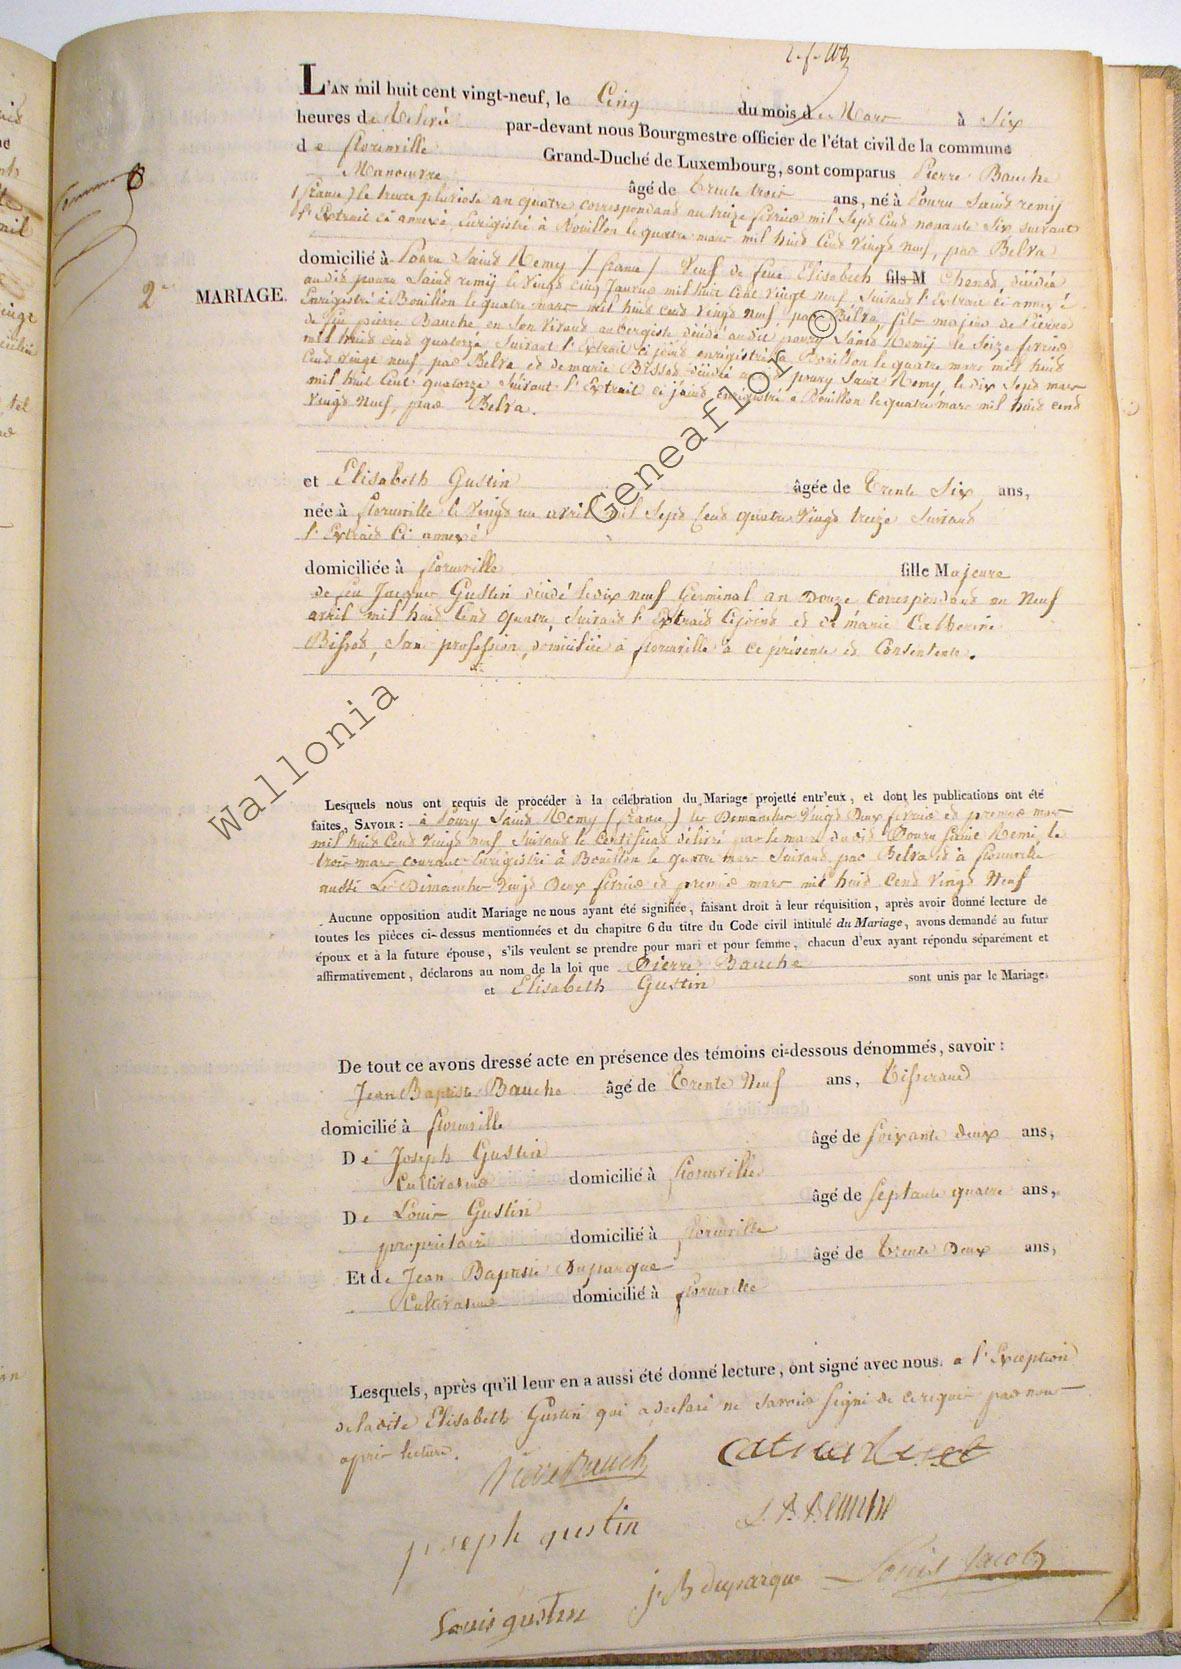 L'AN mil huit cent vingt-neuf, le Cinq du mois de Mars à Six
heures de Relevée par-devant nous Bourgmestre officier de l'état civil de la commune
de florenville Grand-Duché de Luxembourg, sont comparus Pierre Bauche
Manoeuvre âgé de Trente trois ans, né à Poury Saind remij
(france) le treize pluviose an quatre correspondand au treize fevrier mil Sepd Cend nonante Six suivant
l'Extrait ci annexé, Enregistré à Bouillon le quatre mars mil huid Cend Vingd neuf, par Belva
domicilié à Poury Saind Remy (france) Veuf de feue Elisabeth fils M Chanod, décédée
audid poury Saind remij le Vingd Cinq Janvier mil huit Cent Vingt neuf, Suivand l'Extrait ci annexé
2e MARIAGE.
Enregistré à Bouillon le quatre mars mil huid Cend Vingd Neuf par Belva, fils majeur de Pierre
de feu pierre Bauche en Son Vivand aubergiste décédé audit poury Saind Remij le Seize fevrier
mil huid Cend quatorze Suivant l'Extrait ci joind enregistré à Bouillon le quatre mars mil huid
Cend Vingt neuf, par Belva et de marie Bissod décédée poury Saint Remy, le dix Sepd mars
mil huit Cent quatorze Suivant l'Extrait ci joind, enregistré a Bouillon le quatre mars mil huid Cend
Vingd Neuf, par Belva.
et Elisabeth Gustin âgée de Trente Six ans,
née à florenville le Vingd un avril mil Sepd Cend quatre Vingd treize Suivand
l'Extraid Ci annexé
domiciliée à florenville fille Majeure
de feu Jacques Gustin décédé le dix neuf Germinal an Douze Correspondand au Neuf
avril mil huid Cend quatre, Suivand l'Extraid Cijoind et de marie Catherine
Bissod, San profession, domiciliée à florenville à ce présente et Consentente.
Lesquels nous ont requis de procéder à la célébration du Mariage projetté entr'eux, et dont les publications ont été
faites, SAVOIR : à Poury Saind Remy (france) les Dimanches Vingd Deux fevrier et premier mars
mil huid Cend Vingd Neuf Suivand le Certificad délivré par le maire dudid Poury Saint Remi le
trois mars courant Enregistré à Bouillon le quatre mars Suivand par Belva et à florenville
aussi Les Dimanches Vingd Deux fevrier et premier mars mil huid Cend Vingd Neuf
Aucune opposition audit Mariage ne nous ayant été signifiée, faisant droit à leur réquisition, après avoir donné lecture de
toutes les pièces ci-dessus mentionnées et du chapitre 6 du titre du Code civil intitulé du Mariage, avons demandé au futur
époux et à la future épouse, s'ils veulent se prendre pour mari et pour femme, chacun d'eux ayant répondu séparément et
affirmativement, déclarons au nom de la loi que Pierre Bauche
et Elisabeth Gustin sont unis par le Mariage.
De tout ce avons dressé acte en présence des témoins ci-dessous dénommés, savoir :
Jean Baptiste Bauche âgé de Trente Neuf ans, Tisserand
domicilié à florenville
De Joseph Gustin âgé de Soixante deux ans,
Cultivateur domicilié à florenville
De Louis Gustin âgé de Septante quatre ans,
propriétaire domicilié à florenville
Et de Jean Baptiste Duparque âgé de Trente Deux ans,
Cultivateur domicilié à florenville
Lesquels, après qu'il leur en a aussi été donné lecture, ont signé avec nous. a l'Exception
de ladite Elisabeth Gustin qui a déclaré ne Savoir Signé de ce requis par nous
après lecture.
joseph gustin
J. B. Beauche
Louis gustin
j. B duparque
Louis Jacob
Wallonia Geneaflor ©